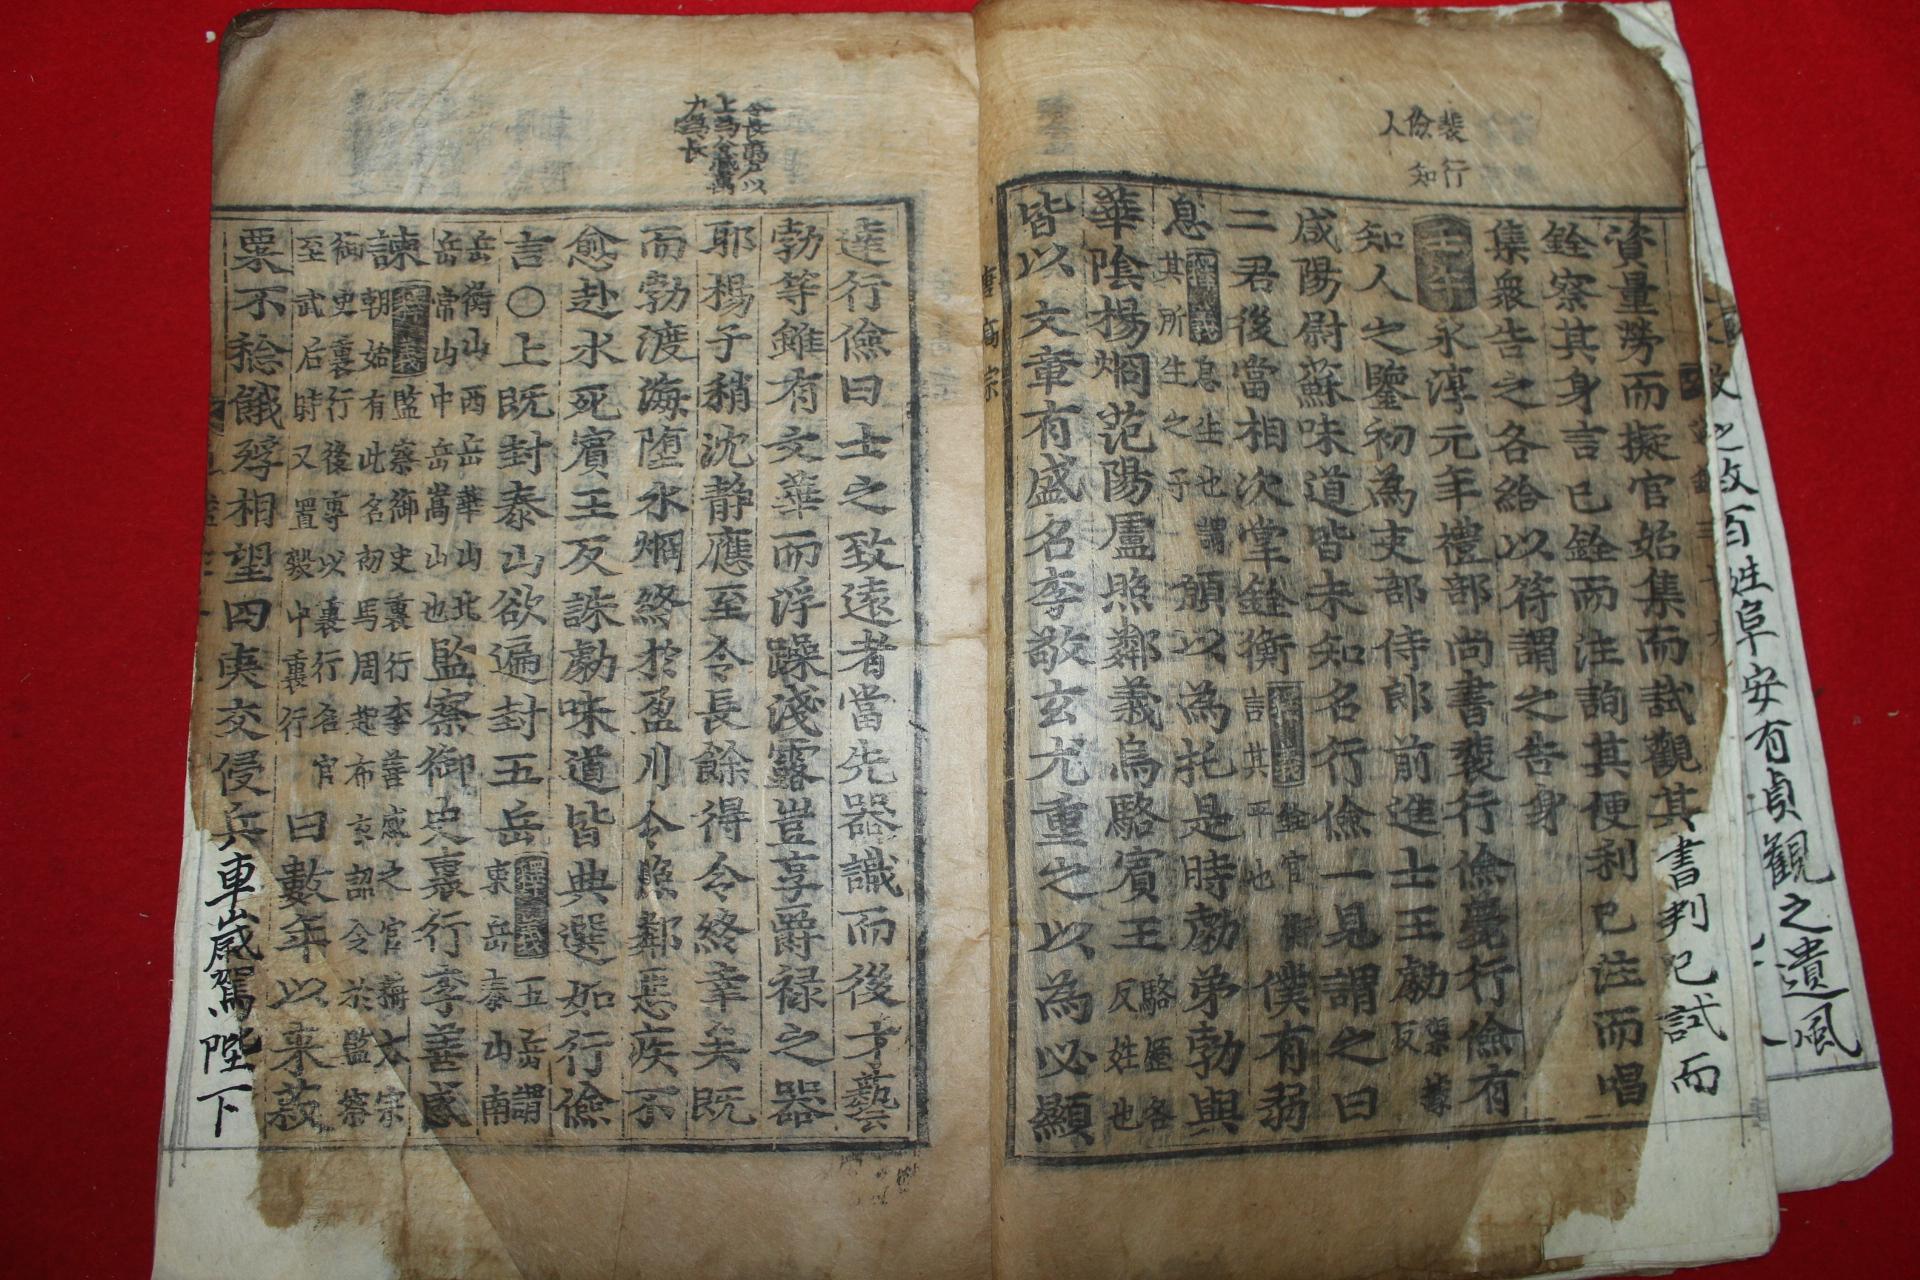 之政百姓阜安有貞觀之遺風
裴行
儉知
人
資量勞而擬官始集而試觀其書判已試而
銓察其身言已銓而注詢其便利已注而唱
集衆告之各給以符謂之告身
壬午永淳元年禮部尚書裴行儉薨行儉有
知人之鑒初為吏部侍郎前進士王勮渠據反
咸陽尉蘇味道皆未知名行儉一見謂之曰
二君後當相次掌銓衡釋義銓官衡言其平也僕有弱
息釋義息生也謂其所生之子願以為托是時勮弟勃與
華陰楊烱范陽盧照鄰義烏駱賓王駱歷各反姓也
皆以文章有盛名李敬玄尤重之以為必顯
唐高宗
令長萬户以
上為令減萬
户為長
達行儉曰士之致遠者當先器識而後才藝
勃等雖有文華而浮躁淺露豈享爵禄之器
耶楊子稍沈静應至令長餘得令終幸矣既
而勃渡海墮水烱終於盈川令照鄰惡疾不
愈赴水死賓王反誅勮味道皆典選如行儉
言○上既封泰山欲遍封五岳釋義五岳謂東岳泰山南
岳衡山西岳華山北岳常山中岳嵩山也監察御史裏行李善感
諫釋義監察御史裏行李善感之官稱太宗朝始有此名初馬周起布衣詔令於監察
御史裏行後尊以裏行名官至武后時又置殿中裏行曰數年以来菽
粟不稔餓殍相望四夷交侵兵車歲駕陛下